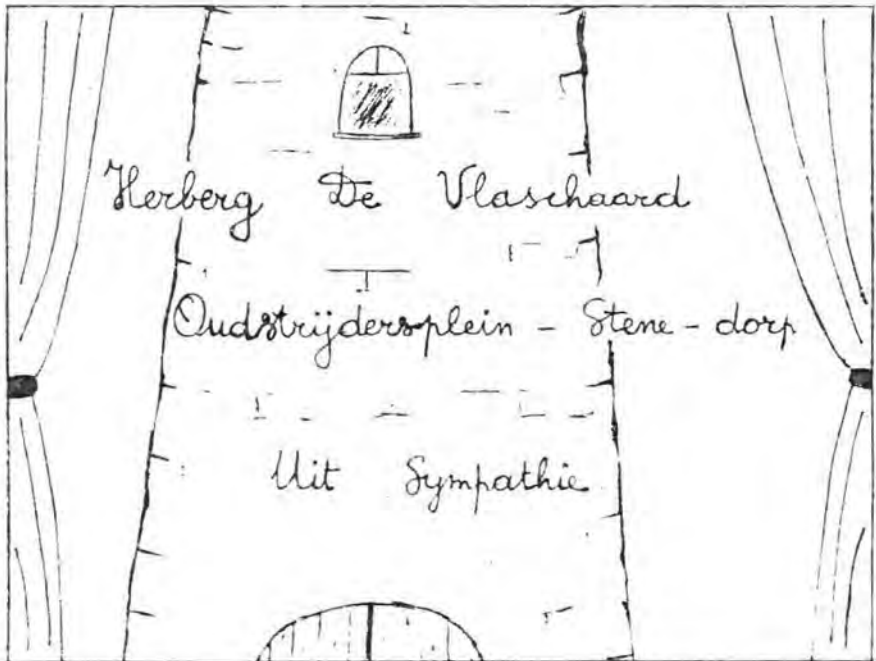 Herberg De Vlaschaard
Oudstrijdersplein - Stene - dorp
Uit Sympathie